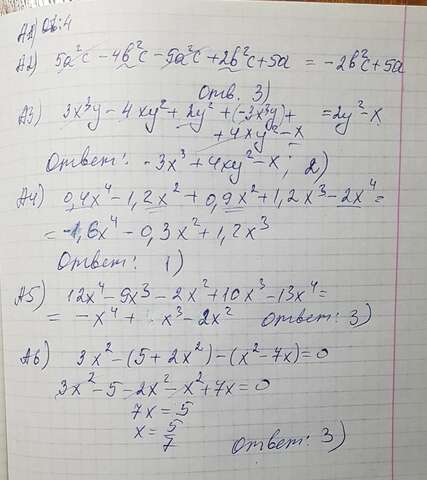 A1) От: 4
A2) 5a²c - 4b²c - 5a²c + 2b²c + 5a = -2b²c + 5a
Отв. 3)
A3) 3x³y - 4xy² + 2y² + (-3x³y) + = 2y² - x
+ 4xy² - x
Ответ: -3x³ + 4xy² - x; 2)
A4) 0,4x⁴ - 1,2x² + 0,9x² + 1,2x³ - 2x⁴ =
= -1,6x⁴ - 0,3x² + 1,2x³
Ответ: 1)
A5) 12x⁴ - 9x³ - 2x² + 10x³ - 13x⁴ =
= -x⁴ + x³ - 2x² Ответ: 3)
A6) 3x² - (5 + 2x²) - (x² - 7x) = 0
3x² - 5 - 2x² - x² + 7x = 0
7x = 5
x = 5/7
Ответ: 3)